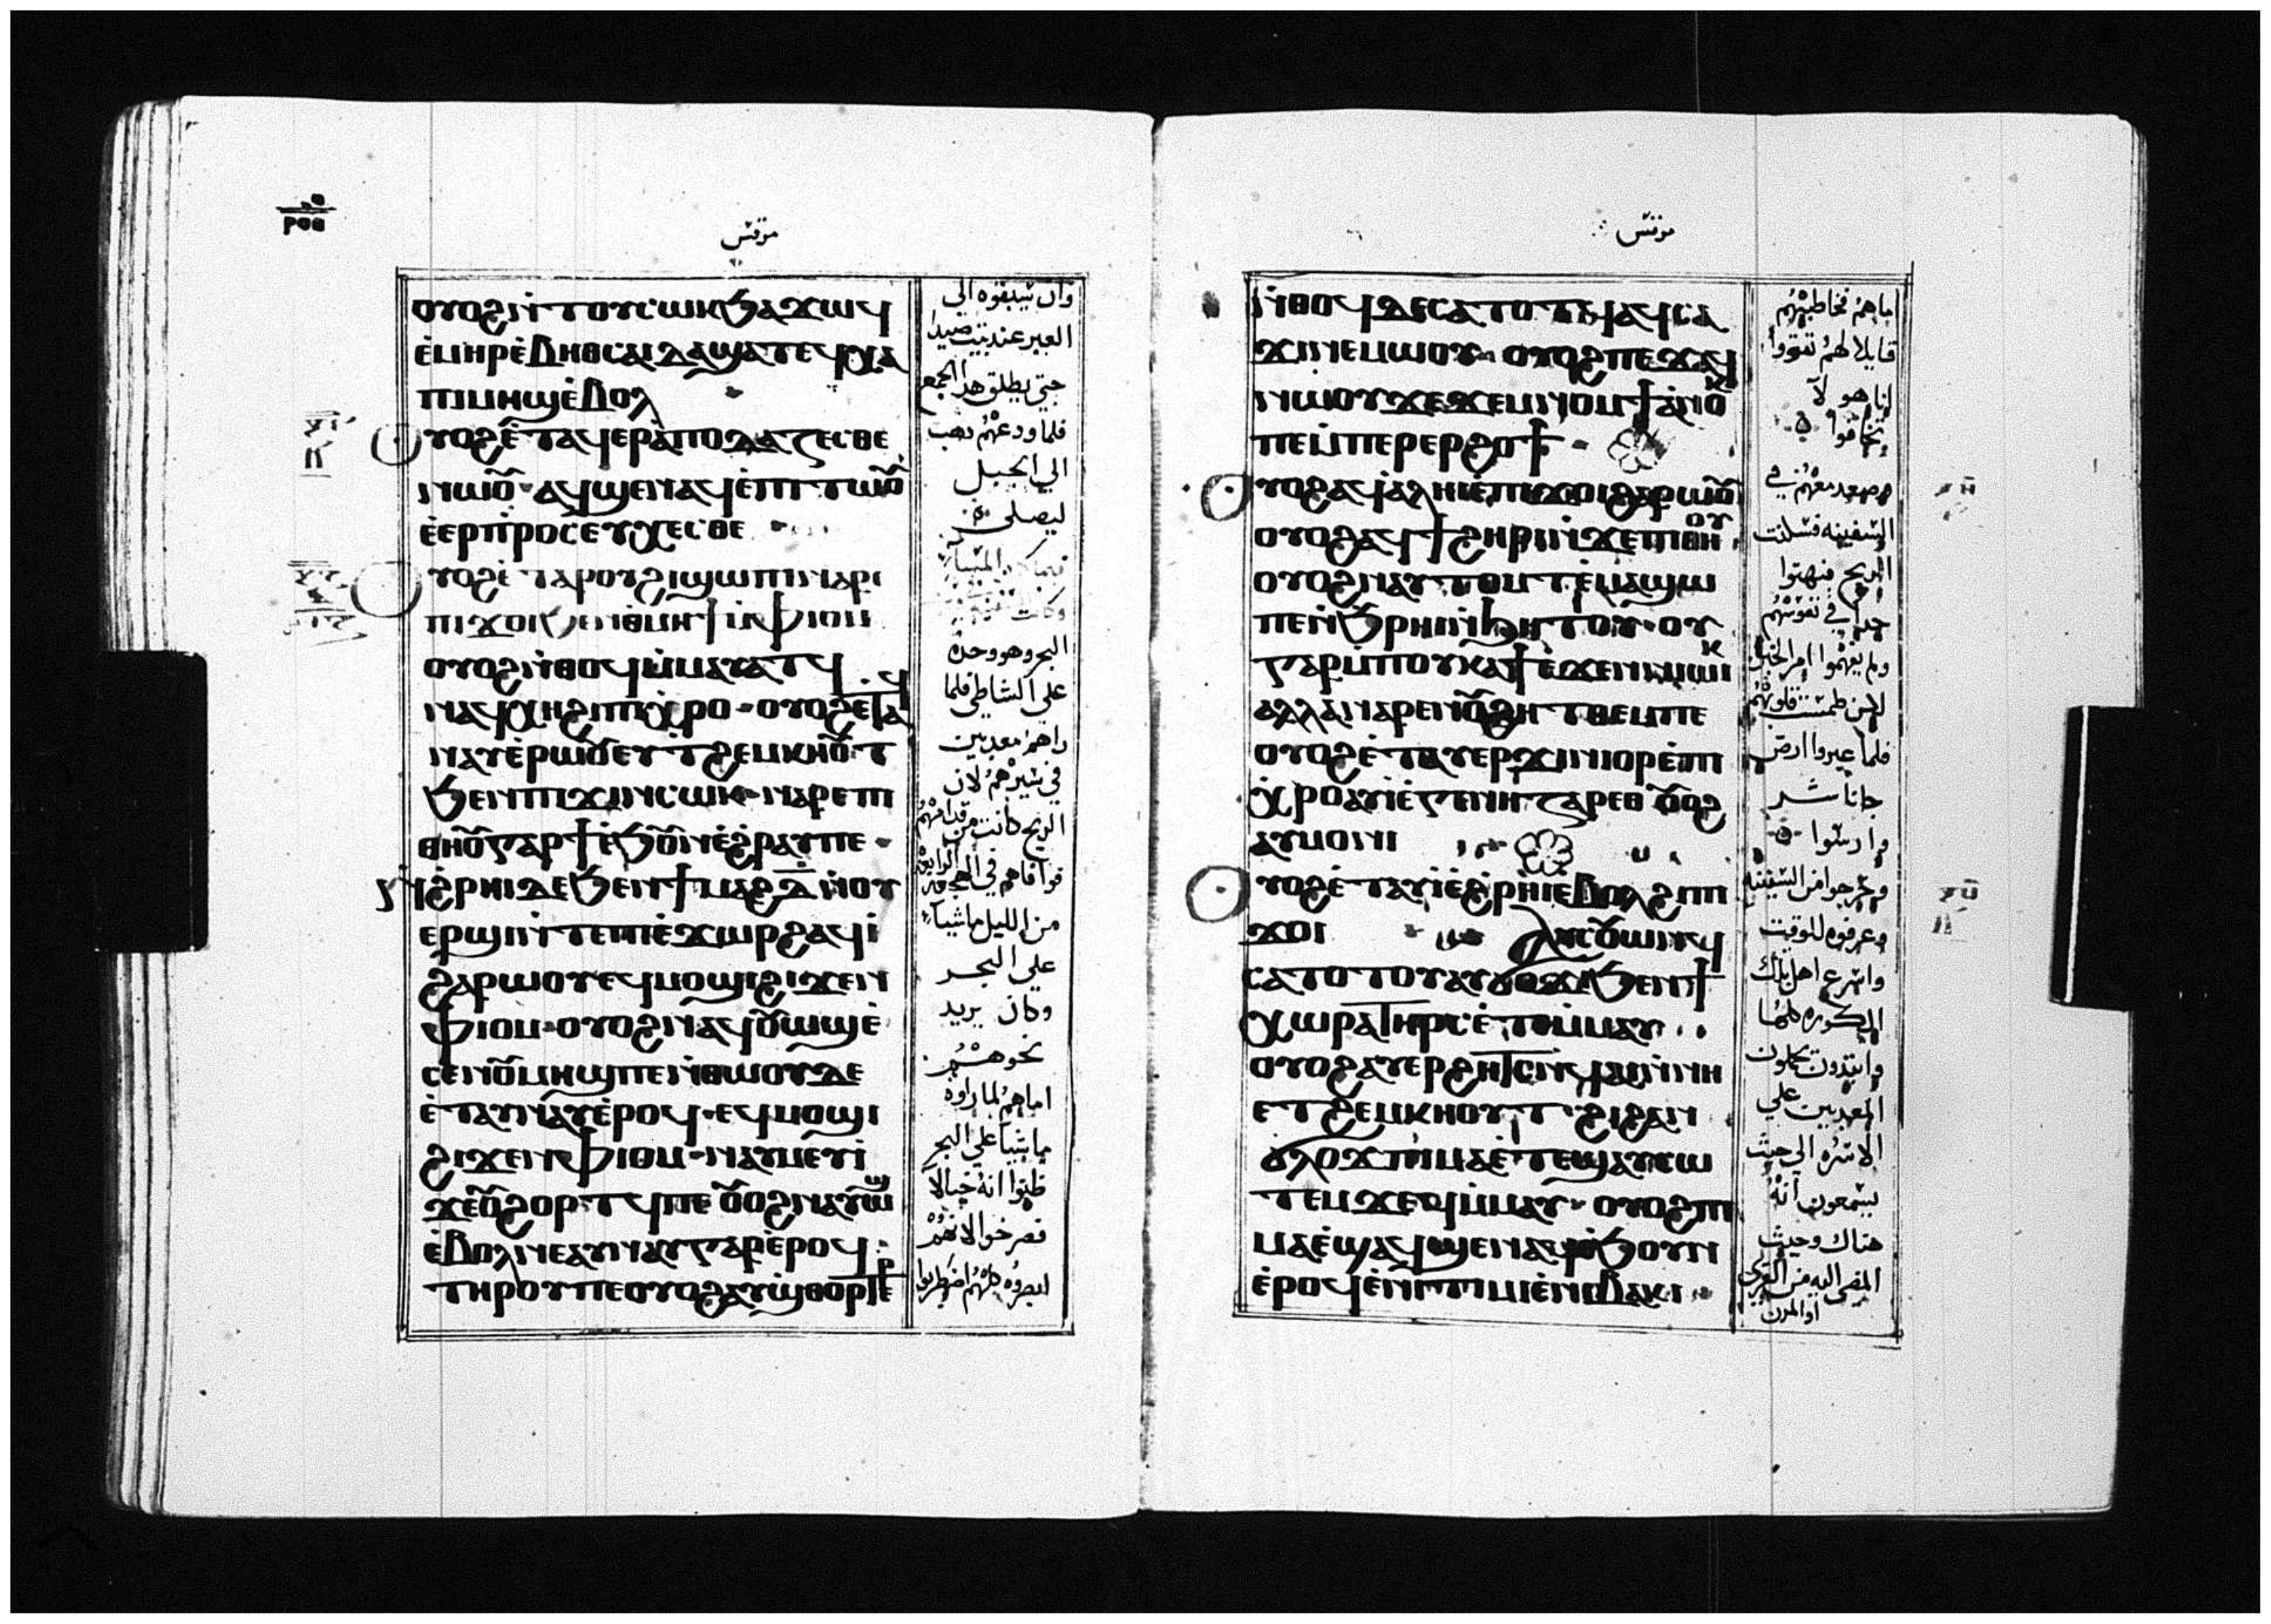 مرقس
ⲟⲩⲟϩ ⲛ̀ⲧⲟⲩⲥⲱⲕ ϧⲁϫⲱϥ
ⲉ̀ⲙⲏⲣ ⲉ̀ⲃⲏⲑⲥⲁⲓⲇⲁ ϣⲁⲧⲉϥⲭⲁ
ⲡⲓⲙⲏϣ ⲉ̀ⲃⲟⲗ
ⲟⲩⲟϩ ⲉ̀ⲧⲁϥⲉⲣⲁ̀ⲡⲟⲇⲁⲍⲉⲥⲑⲉ
ⲛⲱⲟⲩ ⲁϥϣⲉⲛⲁϥ ⲉ̀ⲡⲓⲧⲱⲟⲩ
ⲉ̀ⲉⲣⲡ̀ⲣⲟⲥⲉⲩⲭⲉⲥⲑⲉ
ⲟⲩⲟϩ ⲉ̀ⲧⲁⲣⲟⲩϩⲓ ϣⲱⲡⲓ ⲛⲁⲣⲉ
ⲡⲓϫⲟⲓ ϧⲉⲛ ⲑⲙⲏϯ ⲙ̀ⲫⲓⲟⲙ
ⲟⲩⲟϩ ⲛ̀ⲑⲟϥ ⲙ̀ⲙⲁⲩⲁⲧϥ
ⲛⲁϥⲭⲏ ϩⲓ ⲡⲓⲭⲣⲟ ⲟⲩⲟϩ ⲉⲧⲁϥ
ⲛⲁⲩ ⲉ̀ⲣⲱⲟⲩ ⲉⲩⲧϩⲉⲙⲕⲏⲟⲩⲧ
ϧⲉⲛ ⲡⲓϫⲓⲛⲥⲱⲕ ⲛⲁⲣⲉ ⲡⲓ
ⲑⲏⲟⲩ ⲅⲁⲣ ϯ ⲉ̀ϧⲟⲩⲛ ⲉ̀ϩⲣⲁⲩ ⲡⲉ
ⲛ̀ϩ̀ⲣⲏⲓ ⲇⲉ ϧⲉⲛ ϯⲙⲁϩ ⲇ̅ ⲛ̀ⲟⲩ
ⲉⲣϣⲓ ⲛ̀ⲧⲉ ⲡⲓⲉ̀ϫⲱⲣϩ ⲁϥⲓ̀
ϩⲁⲣⲱⲟⲩ ⲉϥⲙⲟϣⲓ ϩⲓϫⲉⲛ
ⲫⲓⲟⲙ ⲟⲩⲟϩ ⲛⲁϥⲟⲩⲱϣ ⲉ̀
ⲥⲉⲛⲟⲩ ⲙⲏϣ ⲡⲉ ⲛ̀ⲑⲱⲟⲩ ⲇⲉ
ⲉ̀ⲧⲁⲩⲛⲁⲩ ⲉ̀ⲣⲟϥ ⲉϥⲙⲟϣⲓ
ϩⲓϫⲉⲛ ⲫⲓⲟⲙ ⲛⲁⲩⲙⲉⲩⲓ̀
ϫⲉ ⲟⲩϩⲟⲣⲧϥ ⲡⲉ ⲟⲩⲟϩ ⲛⲁⲩⲱϣ
ⲉ̀ⲃⲟⲗ ⲛⲉ ⲁⲩⲛⲁⲩ ⲅⲁⲣ ⲉ̀ⲣⲟϥ
ⲧⲏⲣⲟⲩ ⲡⲉ ⲟⲩⲟϩ ⲁⲩϣ̀ⲑⲟⲣⲧⲉⲣ
وان يسبقوه الي
العبر عند بيت صيدا
حتي يطلق هذا الجمع
فلما ودعهم ذهب
الي الجبل
ليصلي
البحر وهو وحده
علي الشاطي فلما
راهم معدبين
في سيرهم لان
الريح كانت من قدامهم
فوافاهم في الهجعة الرابعة
من الليل ماشيا
علي البحر
وكان يريد
نحوهم
اما هم لما راوه
ماشيا علي البحر
ظنوا انه خيالا
فصرخوا لانهم
ابصروه كلهم اضطربوا
مرقس
ⲛ̀ⲑⲟϥ ⲇⲉ ⲥⲁⲧⲟⲧϥ ⲁϥⲥⲁ
ϫⲓ ⲛⲉⲙⲱⲟⲩ ⲟⲩⲟϩ ⲡⲉϫⲁϥ
ⲛⲱⲟⲩ ϫⲉ ϫⲉⲙⲛⲟⲙϯ ⲁ̀ⲛⲟⲕ
ⲡⲉ ⲙ̀ⲡⲉⲣⲉⲣϩⲟϯ
ⲟⲩⲟϩ ⲁϥⲁ̀ⲗⲏⲓ ⲉ̀ⲡⲓϫⲟⲓ ϩⲁⲣⲱⲟⲩ
ⲟⲩⲟϩ ⲁϥϯϩⲏⲣⲓ ⲛ̀ϫⲉ ⲡⲓⲑⲏⲟⲩ
ⲟⲩⲟϩ ⲛⲁⲩⲧⲟⲙⲧ ⲉ̀ⲙⲁϣⲱ
ⲡⲉ ⲛ̀ϧⲣⲏⲓ ⲛ̀ϧⲏⲧⲟⲩ ⲟⲩ
ⲅⲁⲣ ⲙ̀ⲡⲟⲩⲕⲁϯ ⲉ̀ϫⲉⲛ ⲛⲓⲱⲓⲕ
ⲁⲗⲗⲁ ⲛⲁⲣⲉ ⲛⲟⲩϩⲏⲧ ⲑⲉⲙ ⲡⲉ
ⲟⲩⲟϩ ⲉ̀ⲧⲁⲩⲉⲣϫⲓⲛⲓⲟⲣ ⲉ̀ⲡⲓ
ⲭⲣⲟ ⲁⲩⲓ̀ ⲉ̀ⲅⲉⲛⲏⲍⲁⲣⲉⲑ ⲟⲩⲟϩ
ⲁⲩⲙⲟⲛⲓ
ⲟⲩⲟϩ ⲉ̀ⲧⲁⲩⲓ̀ ⲉ̀ϩ̀ⲣⲏⲓ ⲉ̀ⲃⲟⲗ ϩⲓ ⲡⲓ
ϫⲟⲓ ⲁⲩⲥⲟⲩⲱⲛϥ
ⲥⲁⲧⲟⲧⲟⲩ ⲁⲩϭⲟϫⲓ ϧⲉⲛ ϯ
ⲭⲱⲣⲁ ⲧⲏⲣⲥ ⲉ̀ⲧⲉⲙ̀ⲙⲁⲩ
ⲟⲩⲟϩ ⲁⲩⲉⲣϩⲏⲧⲥ ⲛ̀ϥⲁⲓ ⲛ̀ⲛⲏ
ⲉⲧϩⲉⲙⲕⲏⲟⲩⲧ ϩⲓ ϩⲁⲛ
ϭⲗⲟϫ ⲡⲓⲙⲁ ⲉ̀ⲧⲉϣⲁⲩⲥⲱ
ⲧⲉⲙ ϫⲉ ϥⲙ̀ⲙⲁⲩ ⲟⲩⲟϩ ⲡⲓ
ⲙⲁ ⲉ̀ϣⲁϥϣⲉⲛⲁϥ ⲉ̀ϧⲟⲩⲛ
ⲉ̀ⲣⲟϥ ⲉ̀ⲛⲓϯⲙⲓ ⲉ̀ⲛⲓⲃⲁⲕⲓ
اما هم فخاطبهم
قايلا لهم تقووا
انا هو لا
تخافوا
وصعد معهم في
السفينه فسكنت
الريح فبهتوا
جدا في نفوسهم
ولم يفهموا امر الخبز
لان طمست قلوبهم
فلما عبروا ارض
جاناشر
وارسوا
وخرجوا من السفينه
وعرفوه للوقت
واسرع اهل تلك
الكوره كلها
وابتدوت يحملون
المعدبين علي
الاسره الي حيث
يسمعون انه
هناك وحيث
المضي اليه من القري
او المدن